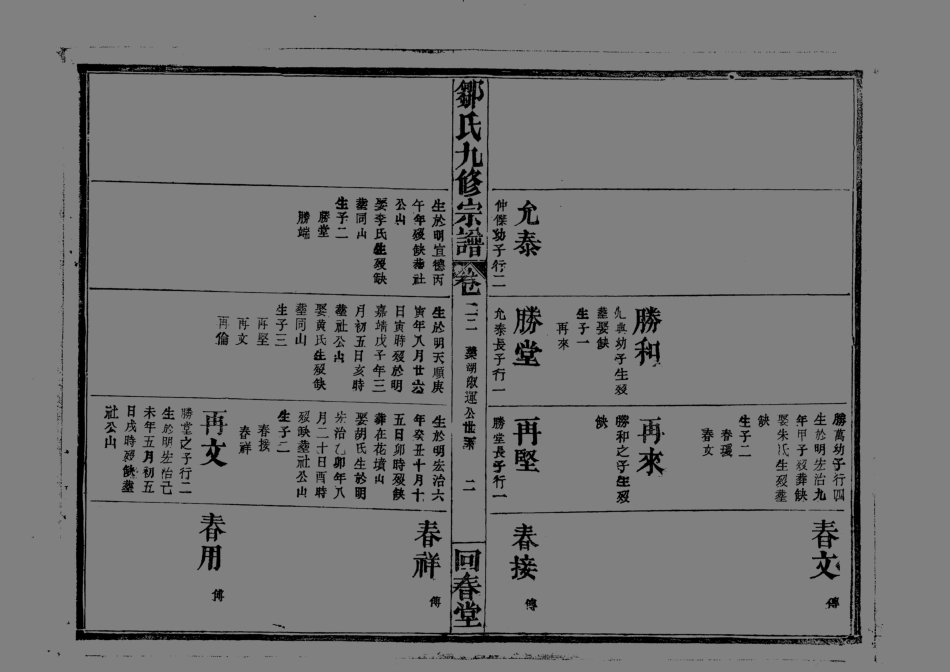 勝萬幼子行四
生於明宏治九
年甲子歿葬缺
娶朱氏生歿葬
缺
生子二
春穩
春文
春文
傳
勝和
允興幼子生歿
葬娶缺
生子一
再來
再來
勝和之子生歿
缺
允泰
仲傑幼子行二
勝堂
允泰長子行一
再堅
勝堂長子行一
春接
傳
鄒氏九修宗譜
卷二二
淑運公世系
二
回春堂
生於明宣德丙
午年歿缺葬社
公山
娶李氏生歿缺
葬同山
生子二
勝堂
勝端
生於明天順庚
寅年八月廿六
日寅時歿於明
嘉靖戊子年三
月初五日亥時
葬社公山
娶黄氏生歿缺
葬同山
生子三
再堅
再文
再倫
生於明宏治六
年癸丑十月十
五日卯時歿缺
葬在花墳山
娶胡氏生於明
宏治乙卯年八
月二十日酉時
歿缺葬社公山
生子二
春接
春祥
春祥
傳
再文
勝堂之子行二
生於明宏治己
未年五月初五
日戌時歿缺葬
社公山
春用
傳